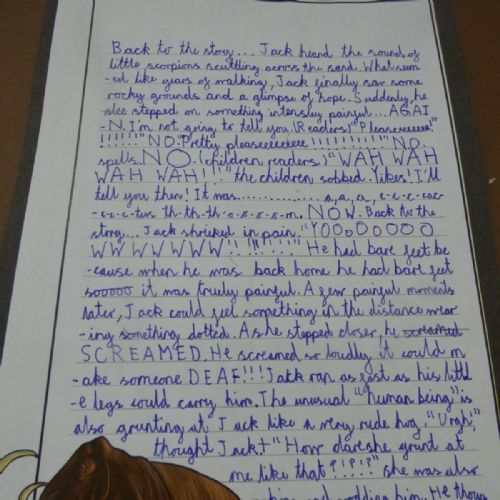 Back to the story... Jack heard the sound of
little scorpions scuttling across the sand. What seem
-ed like years of walking, Jack finally saw some
rocky grounds and a glimpse of hope. Suddenly, he
stepped on something intensley painful... AGAI
-N. I'm not going to tell you! (Readers) "Pleaseeeeeee!"
!!!!!!" NO. Pretty pleaseeeeeeee !!!!!!!!!!" NO
spells NO! (children readers) "WAH WAH
WAH WAH!!!" the children sobbed. Yikes! I'll
tell you then! It was............ a, a, a, c-c-c-cac-
-c-c-c-tus th-th-th-o-o-o-o-m. NOW. Back to the
story... Jack shrieked in pain. "YOOoOOOOO
WWWWWWW!!!!!!!" He had bare feet be
-cause when he was back home he had bare feet
sooooo it was truely painful. A few painful moments
later, Jack could feel something in the distance wear
-ing something dotted. As he stepped closer, he screamed
SCREAMED. He screamed so loudly it could m
-ake someone DEAF!!! Jack ran as fast as his littl
-e legs could carry him. The unusual "human being" is
also grunting at Jack like a very rude hog. "Urgh,"
thought Jack! "How dare she grunt at
me like that?!?!?" she was also
him. He